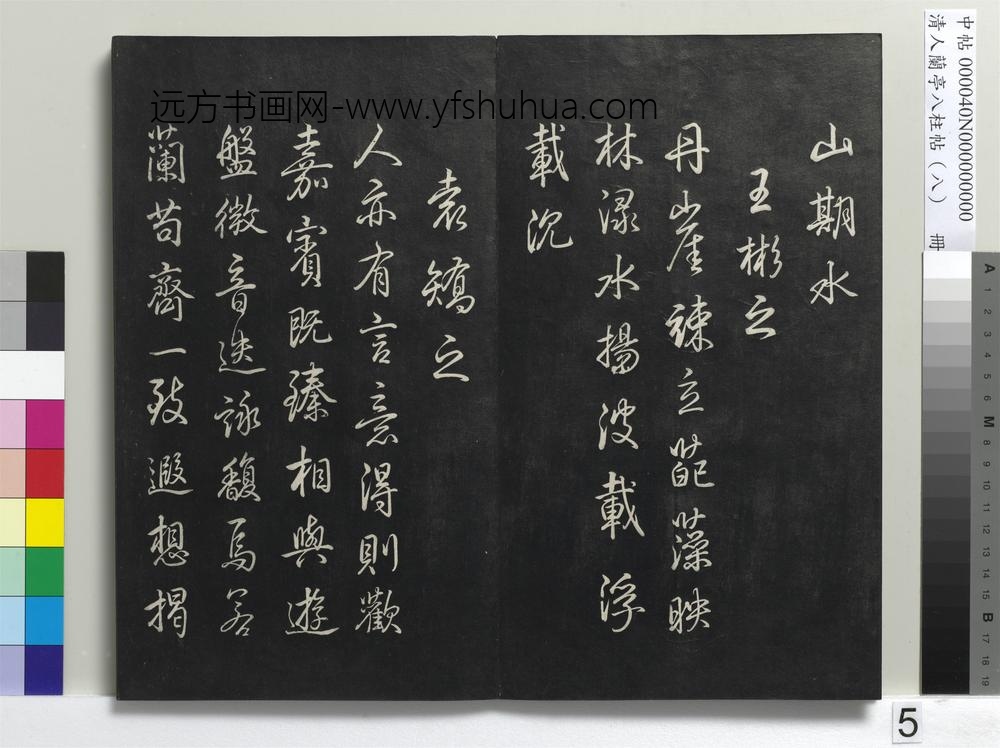 山期水
王彬之
丹崖竦立葩藻映
林渌水揚波載浮
載沉
袁矯之
人亦有言意得則歡
嘉賓既臻相與遊
盤微音迭詠馥焉若
蘭苟齊一致遐想揭
远方书画网-www.yfshuhua.com
中帖000040N000000000
清人蘭亭八柱帖(八) 冊
5
A 1 2 3 4 5 6 M 8 9 10 11 12 13 14 15 B 17 18 19